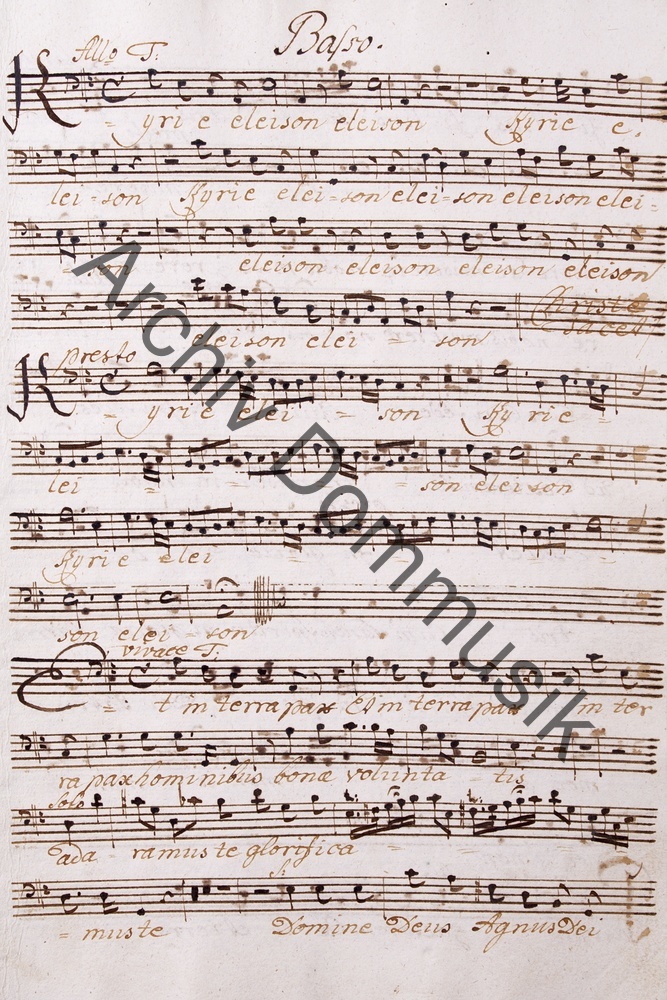 Basso.
All⸰ T:
Kyrie eleison eleison Kyrie e,
lei = son Kyrie elei = son elei = son eleison elei =
= son eleison eleison eleison eleison
eleison elei = son Christe tacet
presto
K = yrie elei = son Kyrie =
lei = = = son eleison
Kyrie elei = = =
son elei = son
vivace T:
E = t in terra pax Et in terra pax in ter
ra pax hominibus bonæ volunta = tis
Solo
ada ramus te glorifica = =
= mus te Domine Deus Agnus Dei
Archiv Dommusik